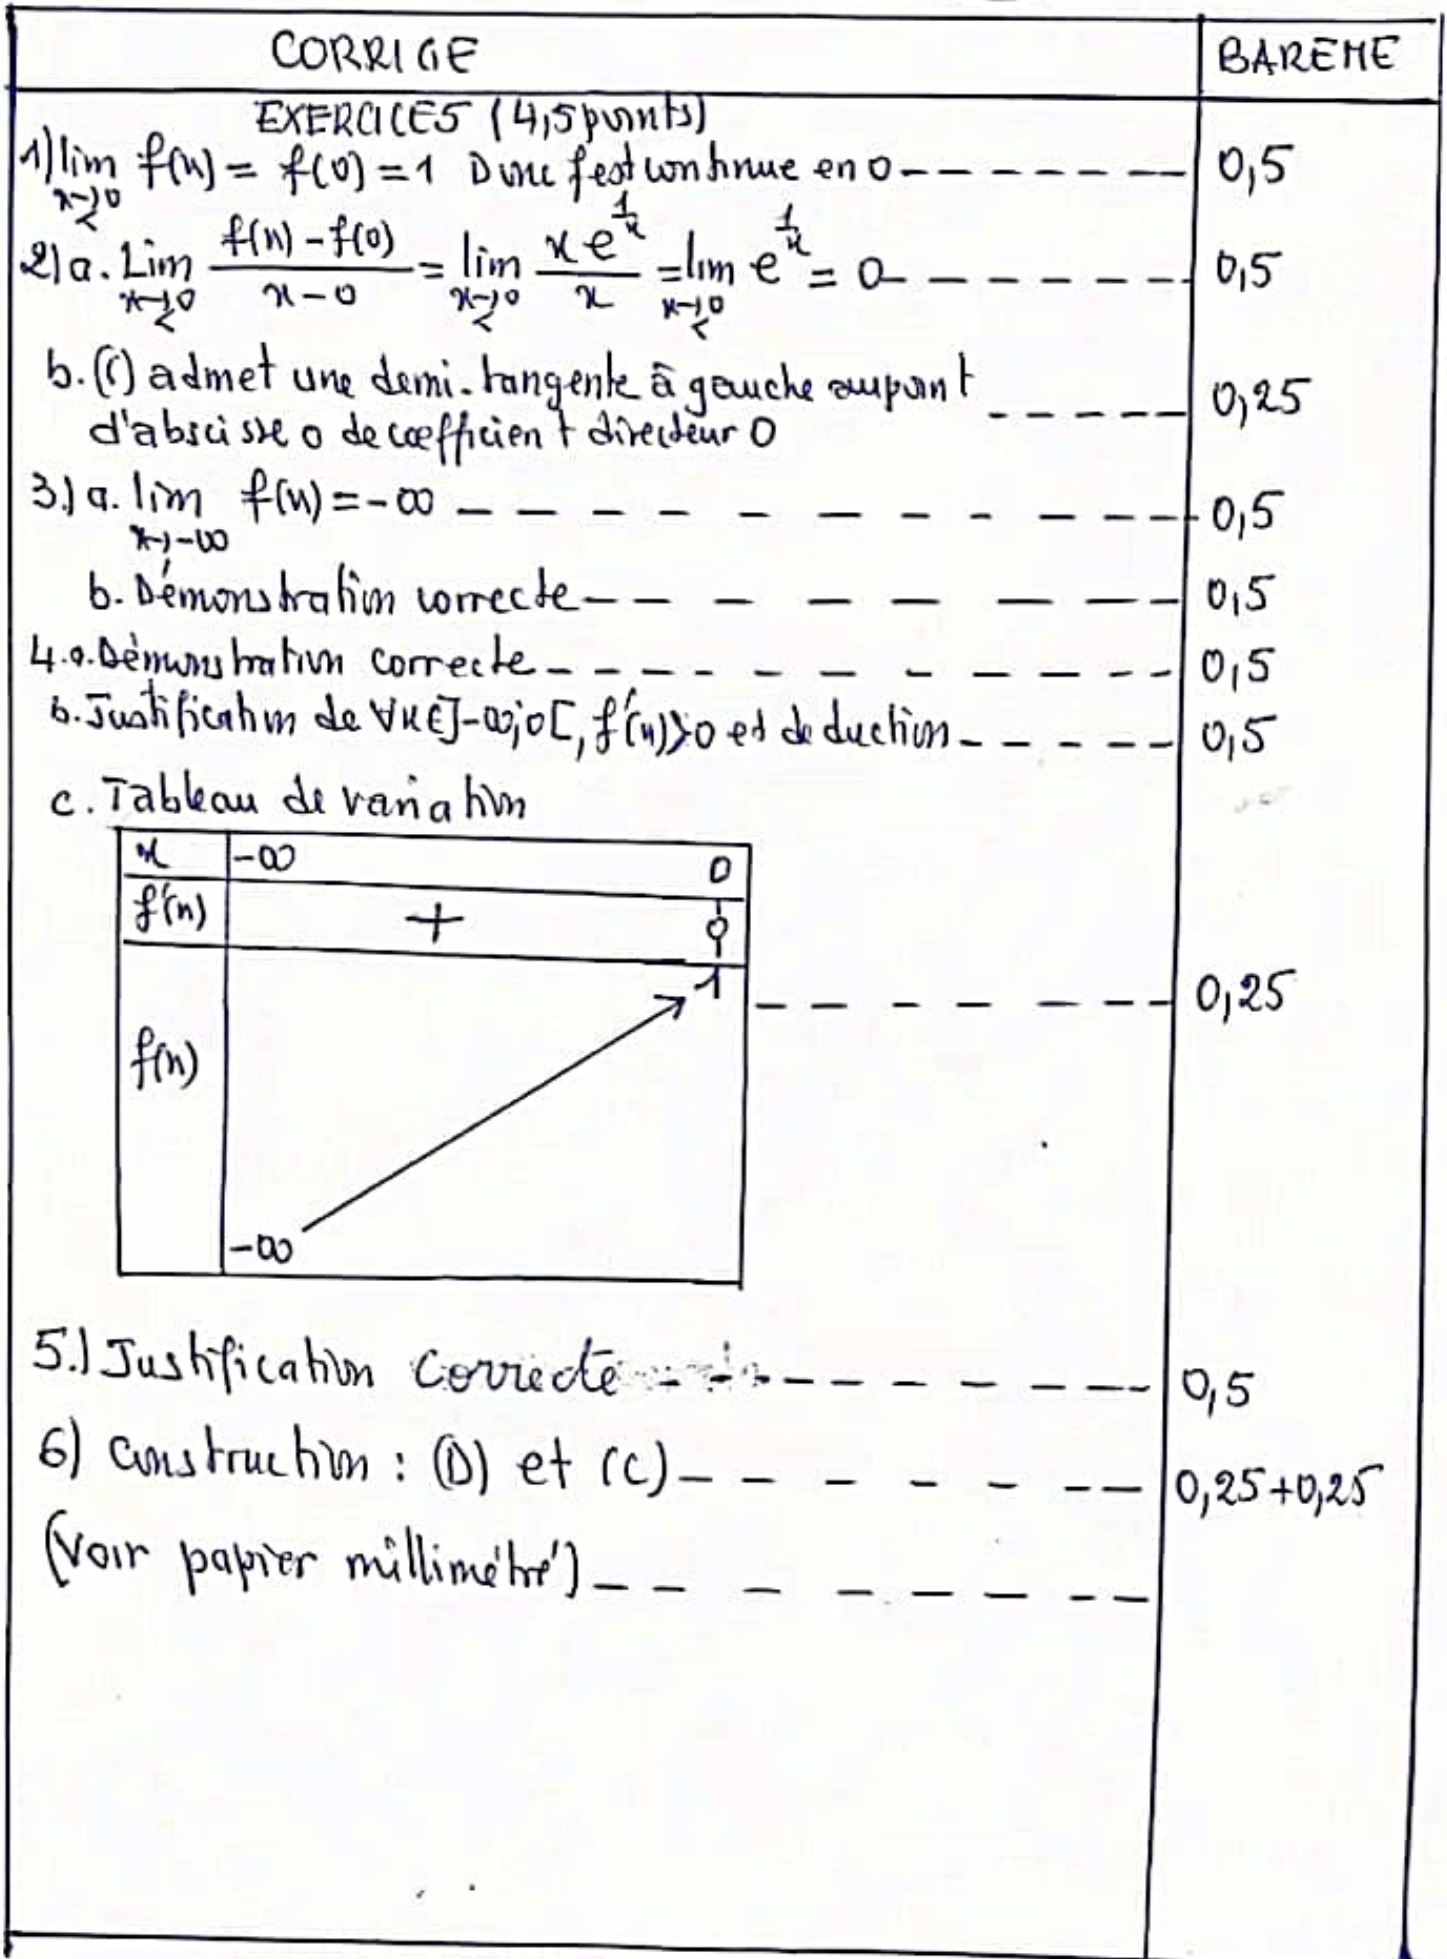 CORRIGE BAREME
EXERCICE5 (4,5 points)
1) lim f(x) = f(0) = 1 Donc f est continue en 0 ------- 0,5
x→0
<
2) a. Lim f(x) - f(0) / x - 0 = lim x e^(1/x) / x = lim e^(1/x) = 0 ------ 0,5
x→0 x→0 x→0
< < <
b. (C) admet une demi-tangente à gauche au point ----- 0,25
d'abscisse 0 de coefficient directeur 0
3.) a. lim f(x) = -∞ ---------- 0,5
x→-∞
b. Démonstration correcte -------- 0,5
4.a. Démonstration correcte --------- 0,5
b. Justification de ∀x∈]-∞;0[, f'(x)>0 et deduction ----- 0,5
c. Tableau de variation
x -∞ 0
f'(x) + 0
1
------- 0,25
f(x)
-∞
5.) Justification correcte --------- 0,5
6) Construction : (D) et (C) ------- 0,25+0,25
(Voir papier millimétré) --------